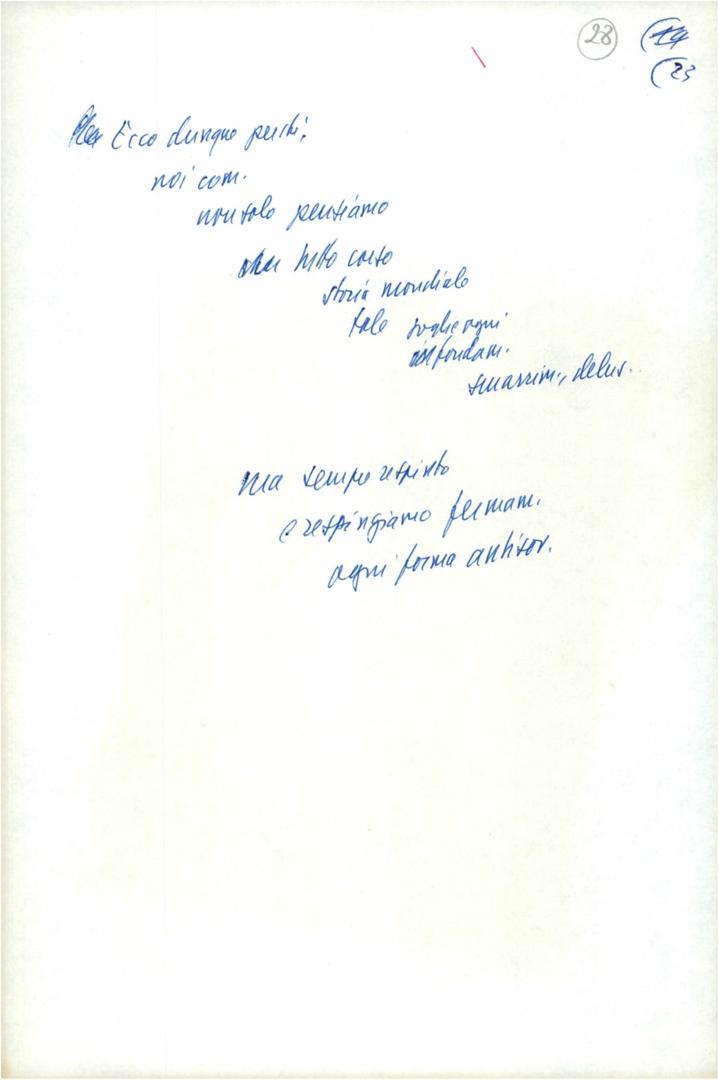 28
(14
(23
Ecco dunque perché,
noi com.
non solo pensiamo
che tutto corso
storia mondiale
tale toglie ogni
fondam.
smarrim., delus.
ma sempre respinto
e respingiamo fermam.
ogni forma antisov.